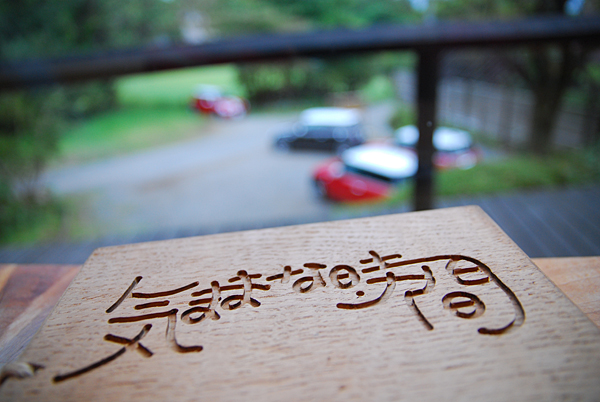 気ままな時間